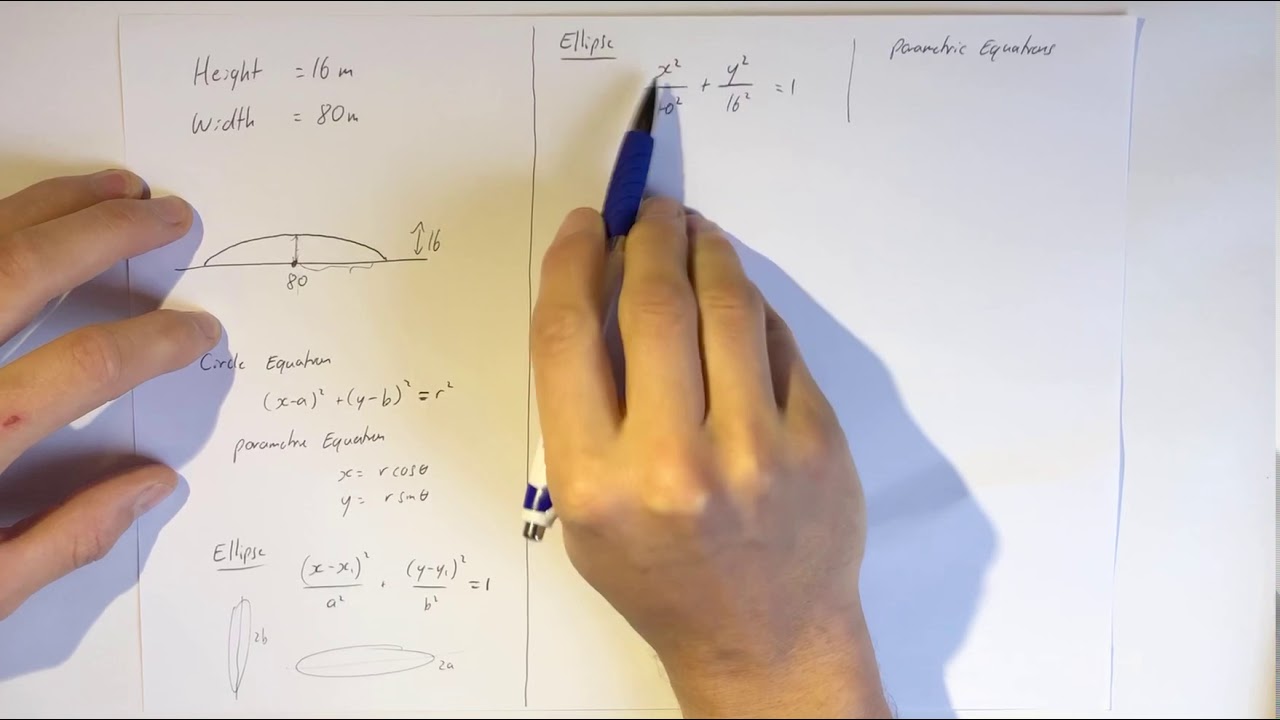 Height = 16 m
Width = 80m
16
80
Circle Equation
(x-a)² + (y-b)² = r²
parametric Equation
x = r cosθ
y = r sinθ
Ellipse
(x-x₁)²/a² + (y-y₁)²/b² = 1
2b
2a
Ellipse
x²/40² + y²/16² = 1
parametric Equations